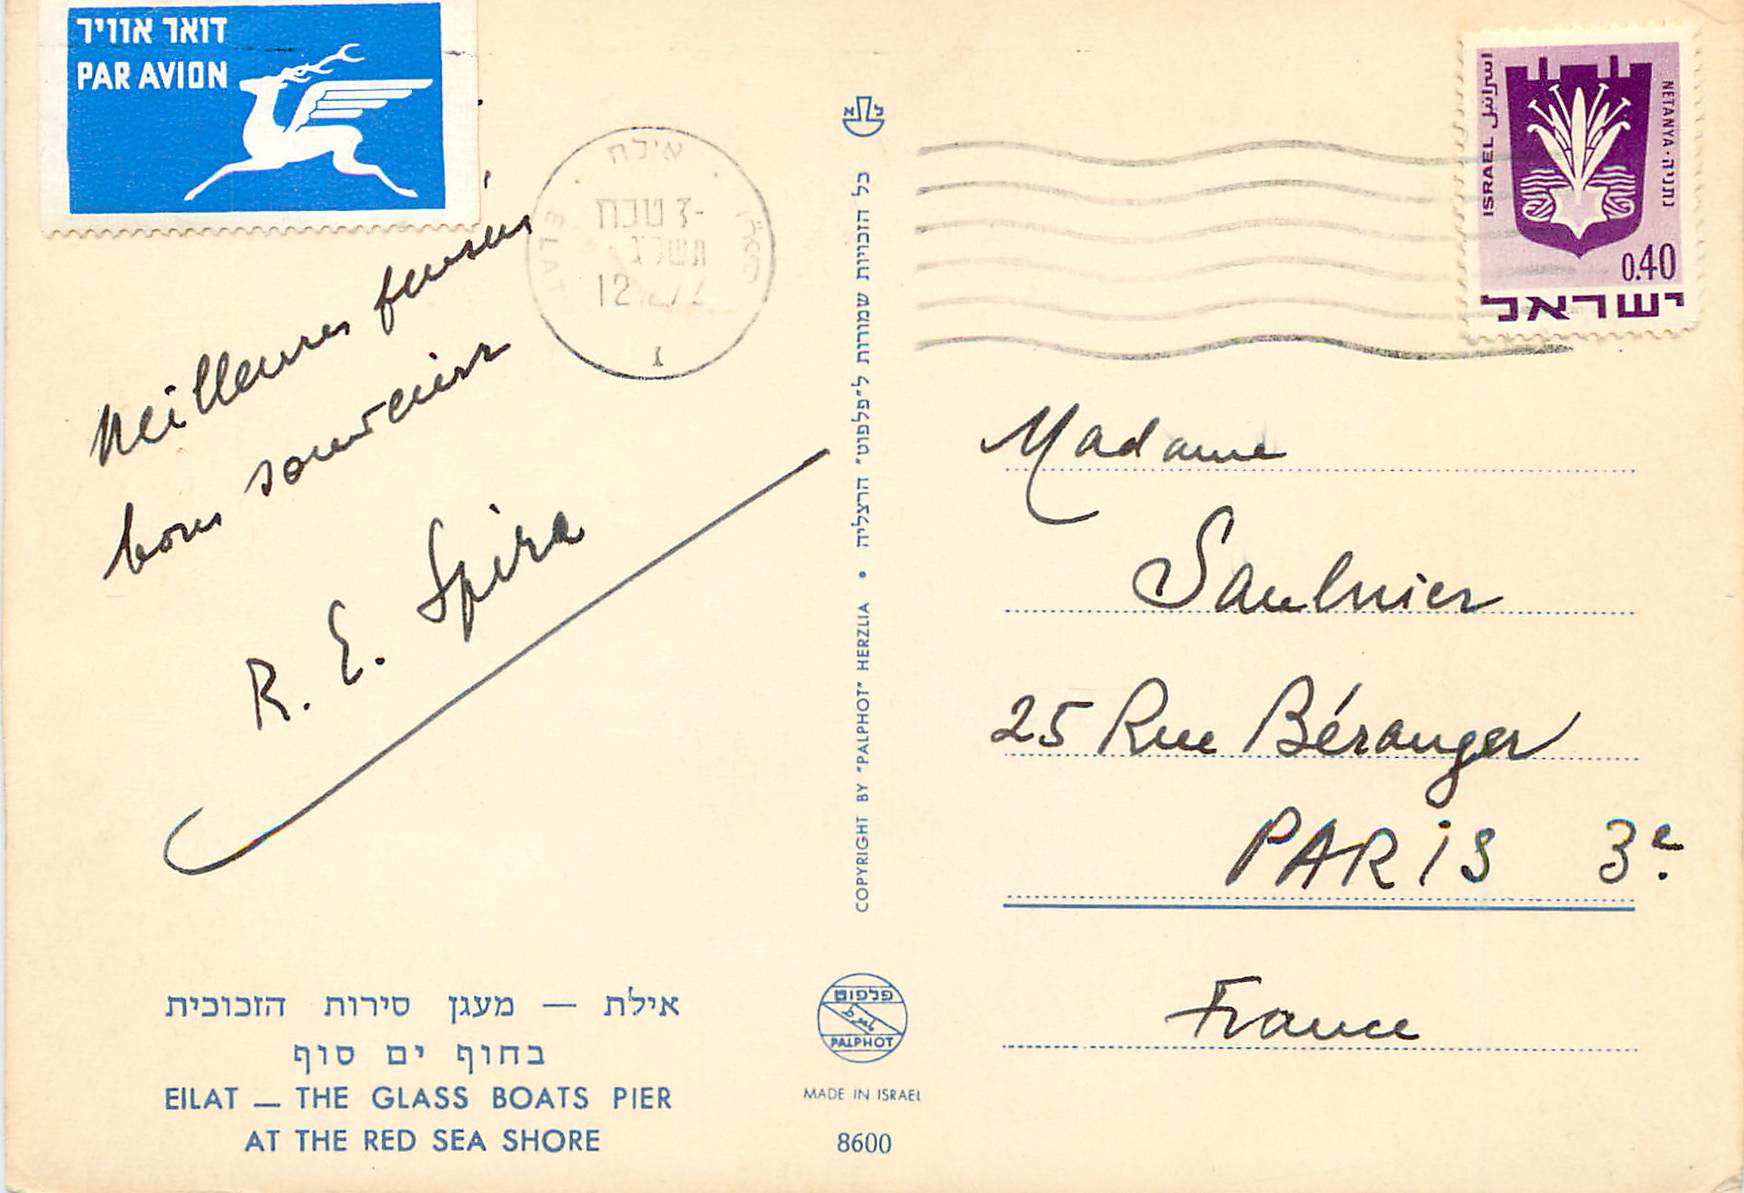 דואר אוויר
PAR AVION
אילת
ELAT
-7 טבת
תשל"ג
ISRAEL اسرائيل
NETANYA · נתניה
0.40
ישראל
Meilleures pensées
bons souvenirs
R. E. Spira
כל הזכויות שמורות ל"פלפוט" הרצליה • COPYRIGHT BY "PALPHOT" HERZLIA
Madame
Saulnier
25 Rue Béranger
PARIS 3e.
France
אילת — מעגן סירות הזכוכית
בחוף ים סוף
EILAT — THE GLASS BOATS PIER
AT THE RED SEA SHORE
פלפוט
PALPHOT
MADE IN ISRAEL
8600